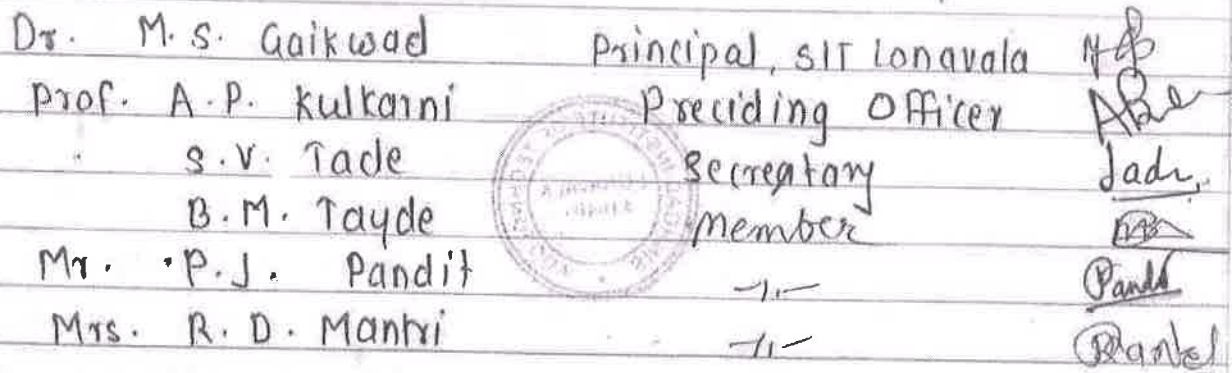 Dr. M. S. Gaikwad Principal, SIT Lonavala
Prof. A. P. Kulkarni Preciding Officer
" S. V. Tade Secreatary
B. M. Tayde Member
Mr. P. J. Pandit -"-
Mrs. R. D. Mantri -"-